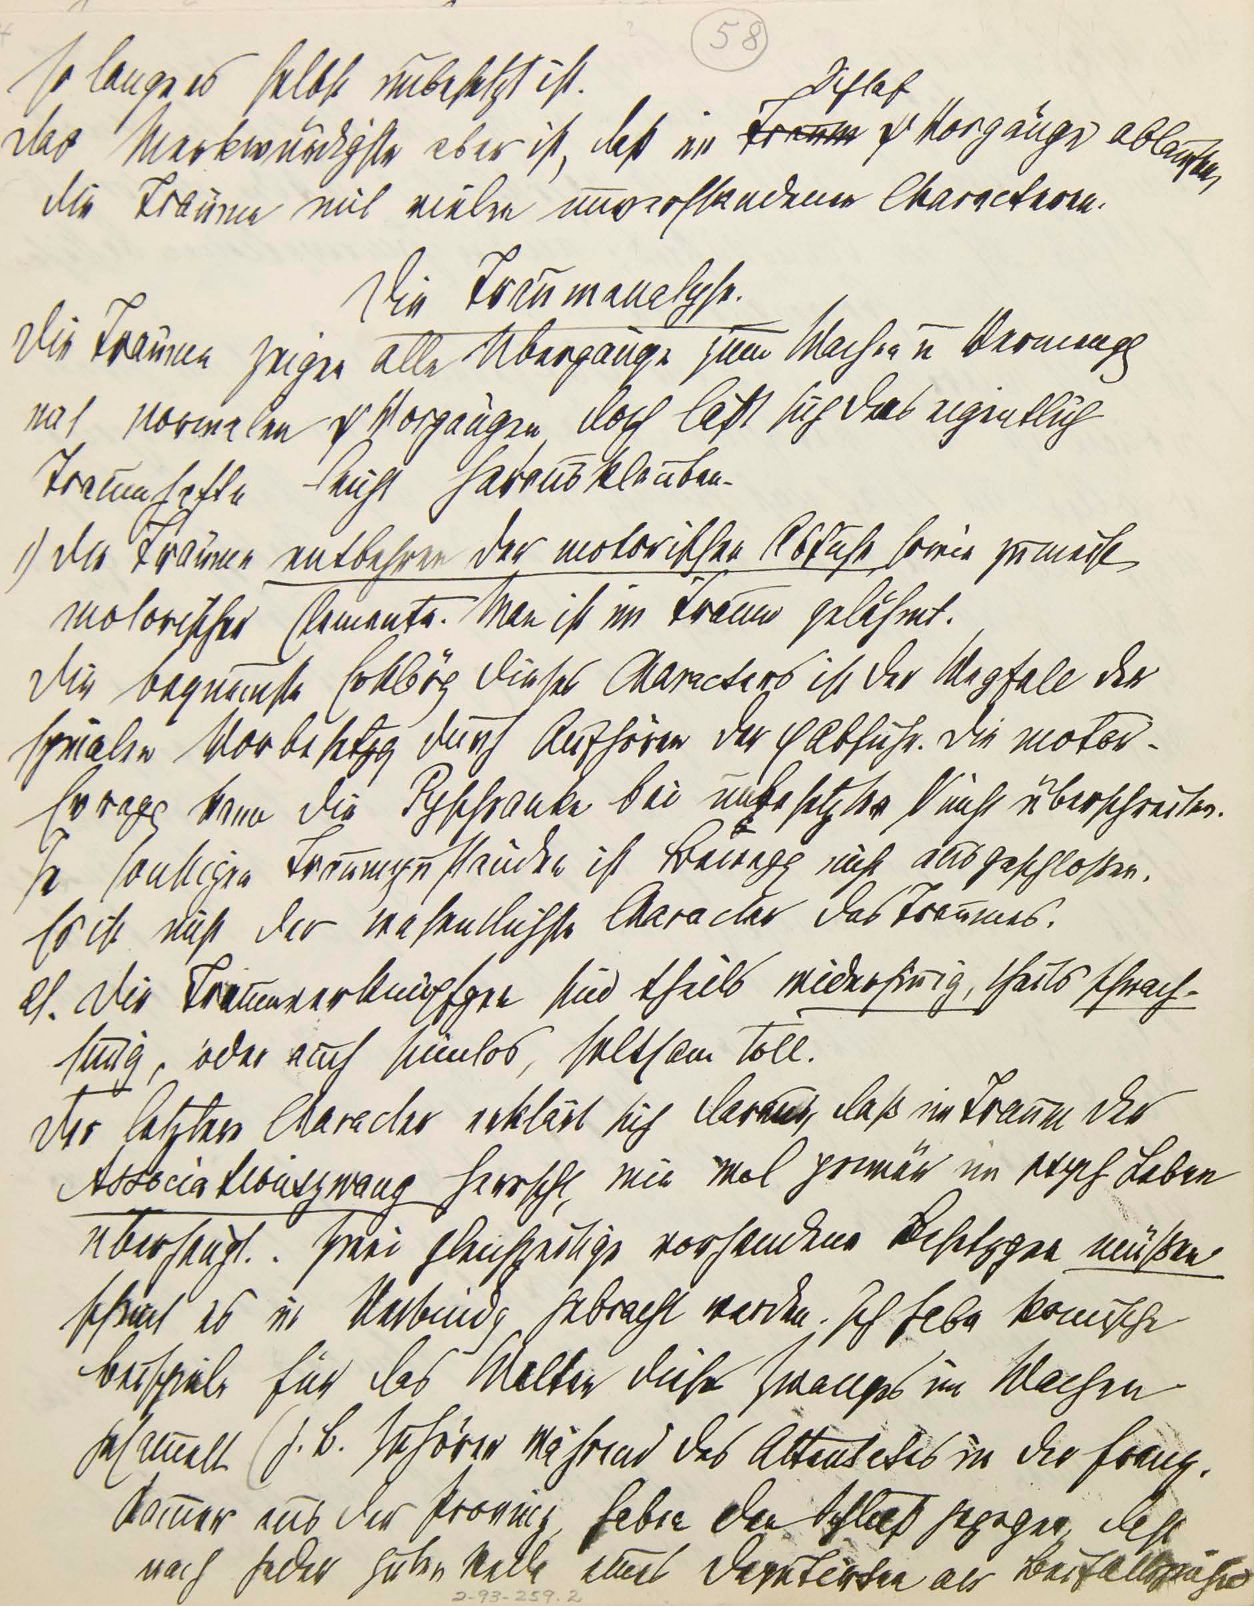 58
so lange es selbst unbesetzt ist.
Schlaf
Das Merkwürdigste aber ist, daß im Traum ψ Vorgänge ablaufen,
die Träume mit vielen unverstandenen Characteren.
Die Traumanalyse.
Die Träume zeigen alle Übergänge zum Wachen u Vermengg
mit normalen ψ Vorgängen, doch läßt sich das eigentlich
Traumhafte leicht herausklauben.
1) Die Träume entbehren der motorischen Abfuhr, sowie zumeist
motorischer Elemente. Man ist im Traum gelähmt.
Die bequemste Erklärg dieses Characters ist der Wegfall der
spinalen Vorbesetzg durch Aufhören der φ Abfuhr. Die motor.
Erregg kann die Pyschranke bei unbesetzten N nicht überschreiten.
In sonstigen Traumzuständen ist Bewegg nicht ausgeschloßen.
Es ist nicht der wesentlichste Character des Traumes.
2). Die Traumverknüpfgen sind theils widersinnig, theils schwach-
sinnig, oder auch sinnlos, seltsam toll.
Der letztere Character erklärt sich daraus, daß im Traum der
Associationszwang herrscht, wie wol primär im psych Leben
überhaupt. Zwei gleichzeitige vorhandene Besetzgen müßen
scheint es in Verbindg gebracht werden. Ich habe komische
Beispiele für das Walten dieses Zwanges im Wachen
gesammelt (z. B. Zuhörer während des Attentates in der franz.
Kammer aus der Provinz, haben den Schluß gezogen, daß
nach jeder guten Rede eines Deputierten als Beifallszeichen
2-93-259.2